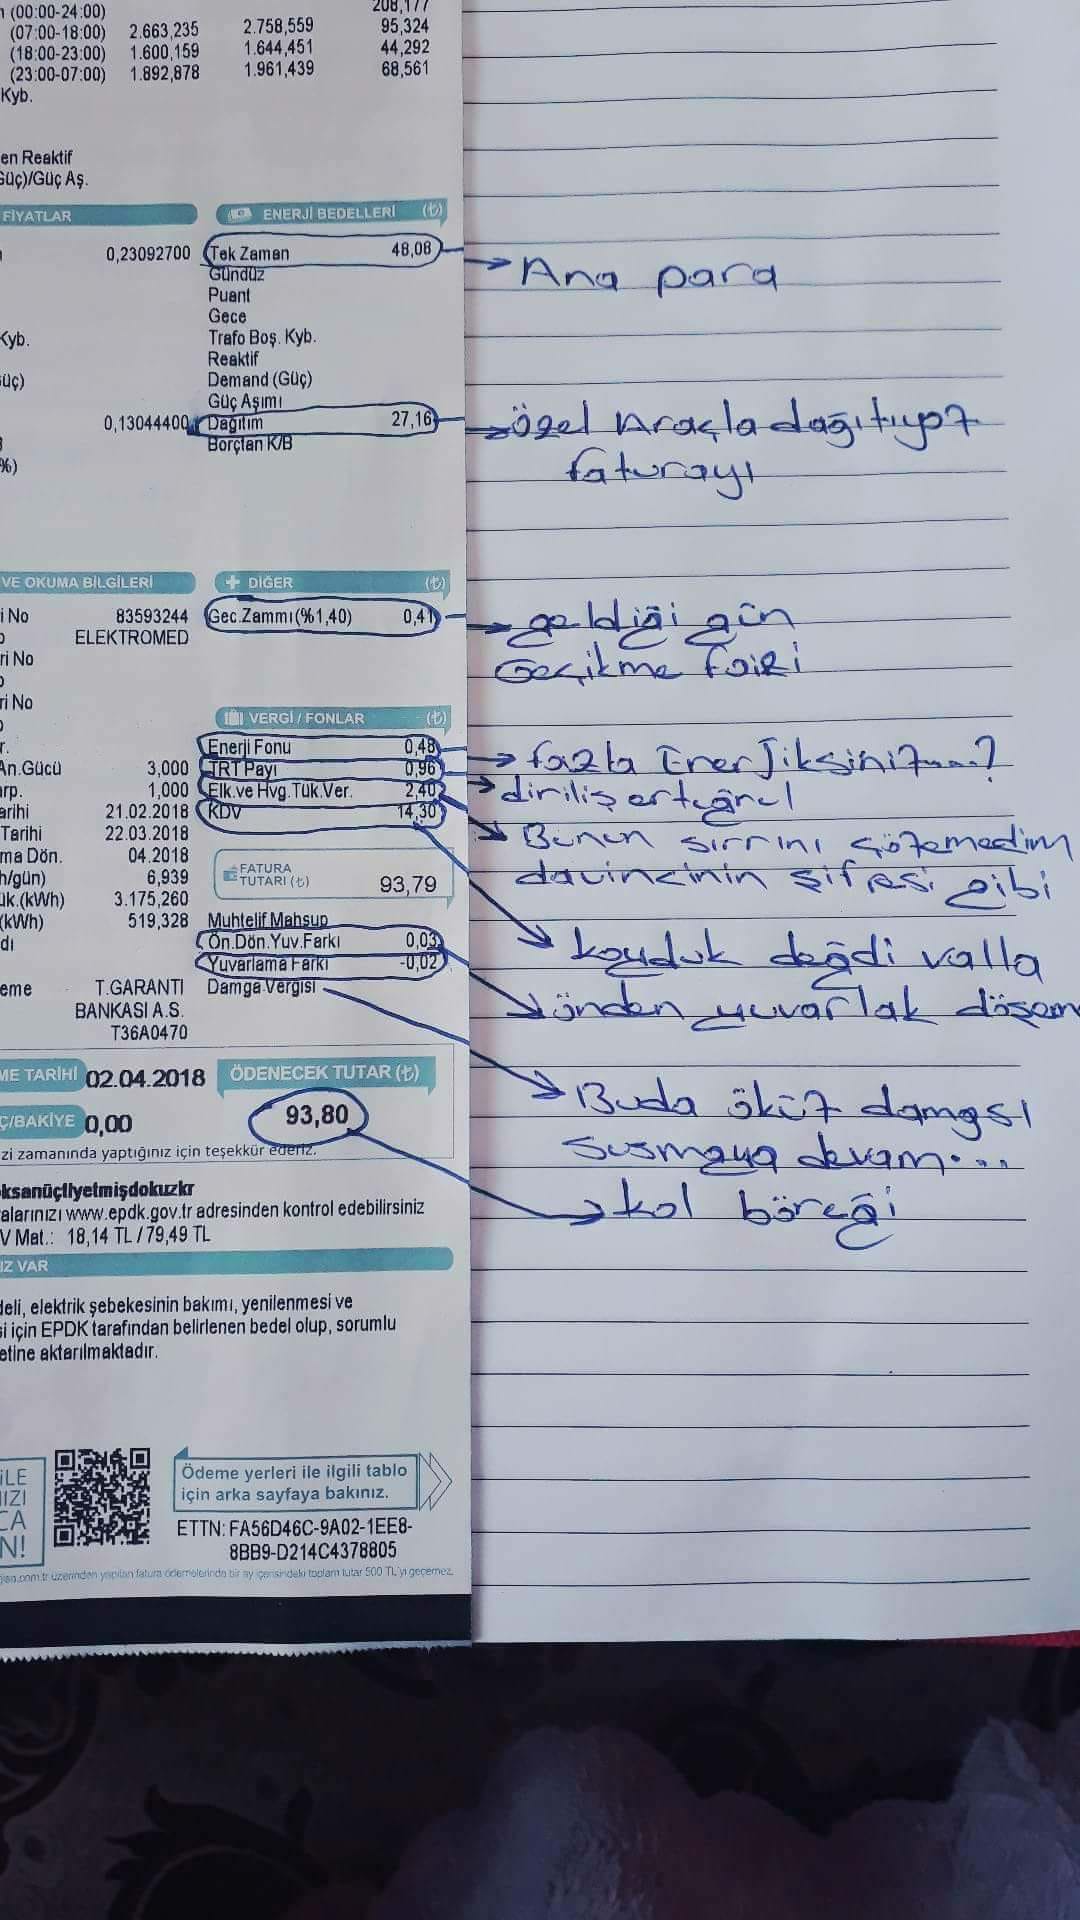 (00:00-24:00) 208,177
(07:00-18:00) 2.663,235 2.758,559 95,324
(18:00-23:00) 1.600,159 1.644,451 44,292
(23:00-07:00) 1.892,878 1.961,439 68,561
Kyb.
en Reaktif
Güç)/Güç Aş.
FİYATLAR
ENERJİ BEDELLERİ (₺)
0,23092700 Tek Zaman 48,08
Ana para
Gündüz
Puant
Gece
Kyb. Trafo Boş. Kyb.
Reaktif
üç) Demand (Güç)
Güç Aşımı
0,13044400 Dağıtım 27,16
özel Araçla dağıtıyoz
faturayı
Borçtan K/B
%)
VE OKUMA BİLGİLERİ
+ DİĞER (₺)
i No 83593244 Gec.Zammı(%1,40) 0,41
geldiği gün
Geçikme faizi
ELEKTROMED
ri No
ri No
VERGİ / FONLAR (₺)
r. Enerji Fonu 0,48
fazla Enerjiksiniz....?
An.Gücü 3,000 TRT Payı 0,96
diriliş ertuğrul
arp. 1,000 Elk.ve Hvg.Tük.Ver. 2,40
Bunun sırrını çözemedim
davincinin şifresi gibi
arihi 21.02.2018 KDV 14,30
koyduk değdi valla
Tarihi 22.03.2018
ma Dön. 04.2018
FATURA
TUTARI (₺) 93,79
h/gün) 6,939
ük.(kWh) 3.175,260
(kWh) 519,328 Muhtelif Mahsup
dı Ön.Dön.Yuv.Farkı 0,03
önden yuvarlak döşem
Yuvarlama Farkı -0,02
eme T.GARANTI Damga Vergisi
BANKASI A.S.
T36A0470
Buda öküz damgsı
susmaya devam....
ME TARİHİ 02.04.2018 ÖDENECEK TUTAR (₺)
Ç/BAKİYE 0,00 93,80
kol böreği
zi zamanında yaptığınız için teşekkür ederiz.
ksanüçtlyetmişdokuzkr
alarınızı www.epdk.gov.tr adresinden kontrol edebilirsiniz
V Mat.: 18,14 TL / 79,49 TL
IZ VAR
deli, elektrik şebekesinin bakımı, yenilenmesi ve
si için EPDK tarafından belirlenen bedel olup, sorumlu
etine aktarılmaktadır.
İLE
IIZI
CA
N!
Ödeme yerleri ile ilgili tablo
için arka sayfaya bakınız.
ETTN: FA56D46C-9A02-1EE8-
8BB9-D214C4378805
üzerinden yapılan fatura ödemelerinde bir ay içerisindeki toplam tutar 500 TL'yi geçemez.